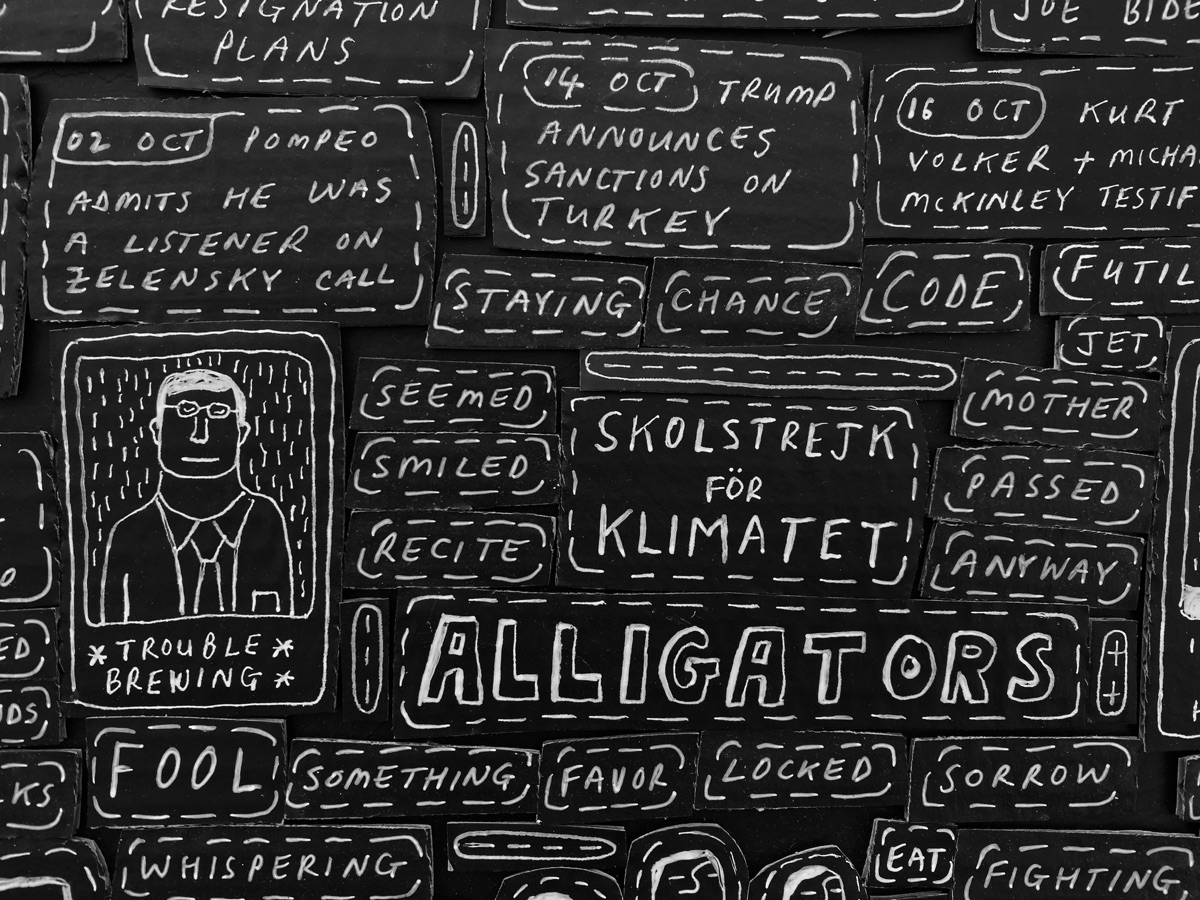 RESIGNATION
PLANS
JOE BIDE
02 OCT POMPEO
ADMITS HE WAS
A LISTENER ON
ZELENSKY CALL
14 OCT TRUMP
ANNOUNCES
SANCTIONS ON
TURKEY
16 OCT KURT
VOLKER + MICHA
MCKINLEY TESTIF
STAYING
CHANCE
CODE
FUTIL
JET
SEEMED
SMILED
RECITE
SKOLSTREJK
FÖR
KLIMATET
MOTHER
PASSED
ANYWAY
*TROUBLE*
BREWING*
ALLIGATORS
FOOL
SOMETHING
FAVOR
LOCKED
SORROW
WHISPERING
EAT
FIGHTING